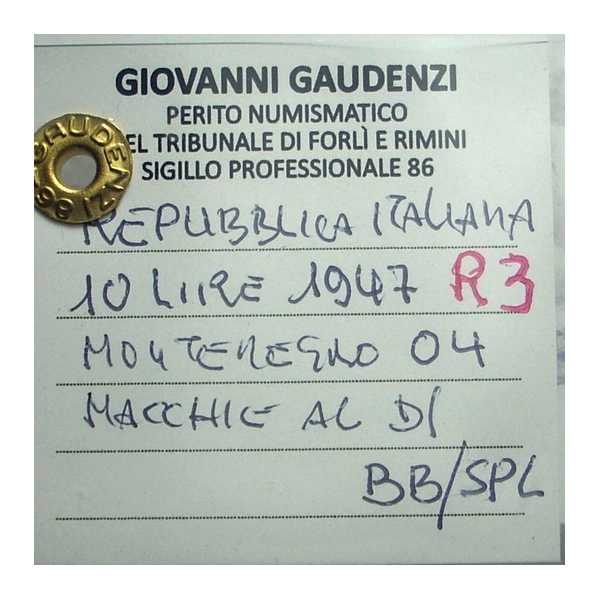 GIOVANNI GAUDENZI
PERITO NUMISMATICO
EL TRIBUNALE DI FORLÌ E RIMINI
SIGILLO PROFESSIONALE 86
GAUDENZI 86
REPUBBLICA ITALIANA
10 LIRE 1947 R3
MONTENEGRO 04
MACCHIE AL D/
BB/SPL